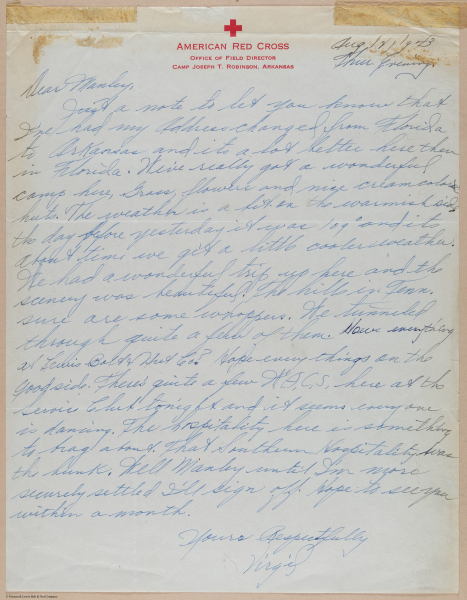 AMERICAN RED CROSS
OFFICE OF FIELD DIRECTOR
CAMP JOSEPH T. ROBINSON, ARKANSAS
Aug 1943
Thur Evening.
Dear Manley,
Just a note to let you know that
I've had my Address changed from Florida
to Arkansas and it's a lot better here then
in Florida. We've really got a wonderful
camp here, Grass, flowers and nice cream colored
huts. The weather is a bit on the warmish side
the day before yesterday it was 109° and it's
about time we got a little cooler weather.
We had a wonderful trip up here and the
scenery was beautiful. The hills in Tenn.
sure are some whoppers. We tunneled
through quite a few of them. How's everything
at Lewis Bolt & Nut Co? Hope everythings on the
good side. There's quite a few W.A.C.S. here at the
Service Club tonight and it seems everyone
is dancing. The hospitality here is something
to brag about. That Southern Hospitality was
the bunk. Well Manley until I'm more
securely settled I'll sign off. Hope to see you
within a month.
Yours Respectfully
Virgil